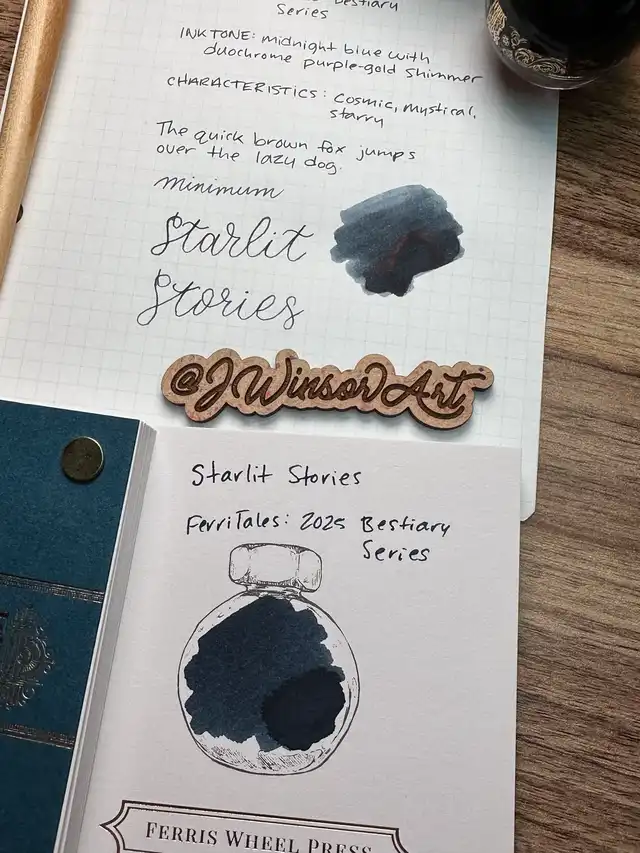 Bestiary
Series
INK TONE: midnight blue with
duochrome purple-gold shimmer
CHARACTERISTICS: Cosmic, mystical,
starry
The quick brown fox jumps
over the lazy dog.
minimum
Starlit
Stories
@JWinsorArt
Starlit Stories
FerriTales: 2025 Bestiary
Series
FERRIS WHEEL PRESS